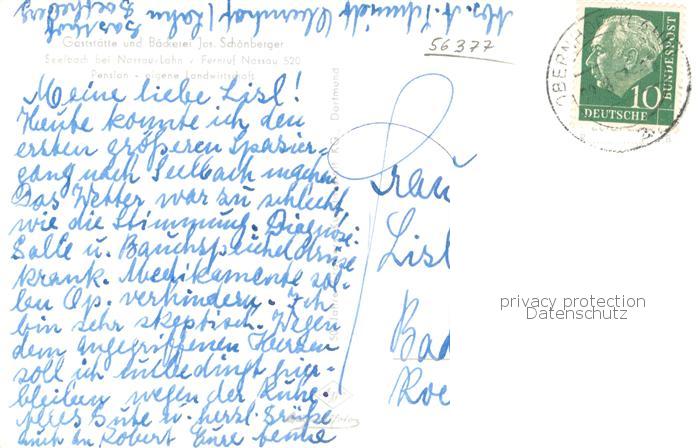 Abs. A. Schmidt Obernhof/Lahn
Gasthof
56377
Gaststätte und Bäckerei Jos. Schönberger
Seelbach bei Nassau-Lahn · Fernruf Nassau 520
Pension - eigene Landwirtschaft
Meine liebe Lisl!
Heute konnte ich den
ersten größeren Spazier-
gang nach Seelbach machen.
Das Wetter war zu schlecht,
wie die Stimmung. Diagnose:
Galle u. Bauchspeicheldrüse
krank. Medikamente sol-
len Op. verhindern. Ich
bin sehr skeptisch. Wegen
dem angegriffenen Herzen
soll ich unbedingt hier-
bleiben wegen der Ruhe.
Alles Gute u. herzl. Grüße
auch an Robert Eure Aenne
Dortmund
Frau
Lisl
Bad
OBERNH
10
DEUTSCHE
BUNDESPOST
privacy protection
Datenschutz